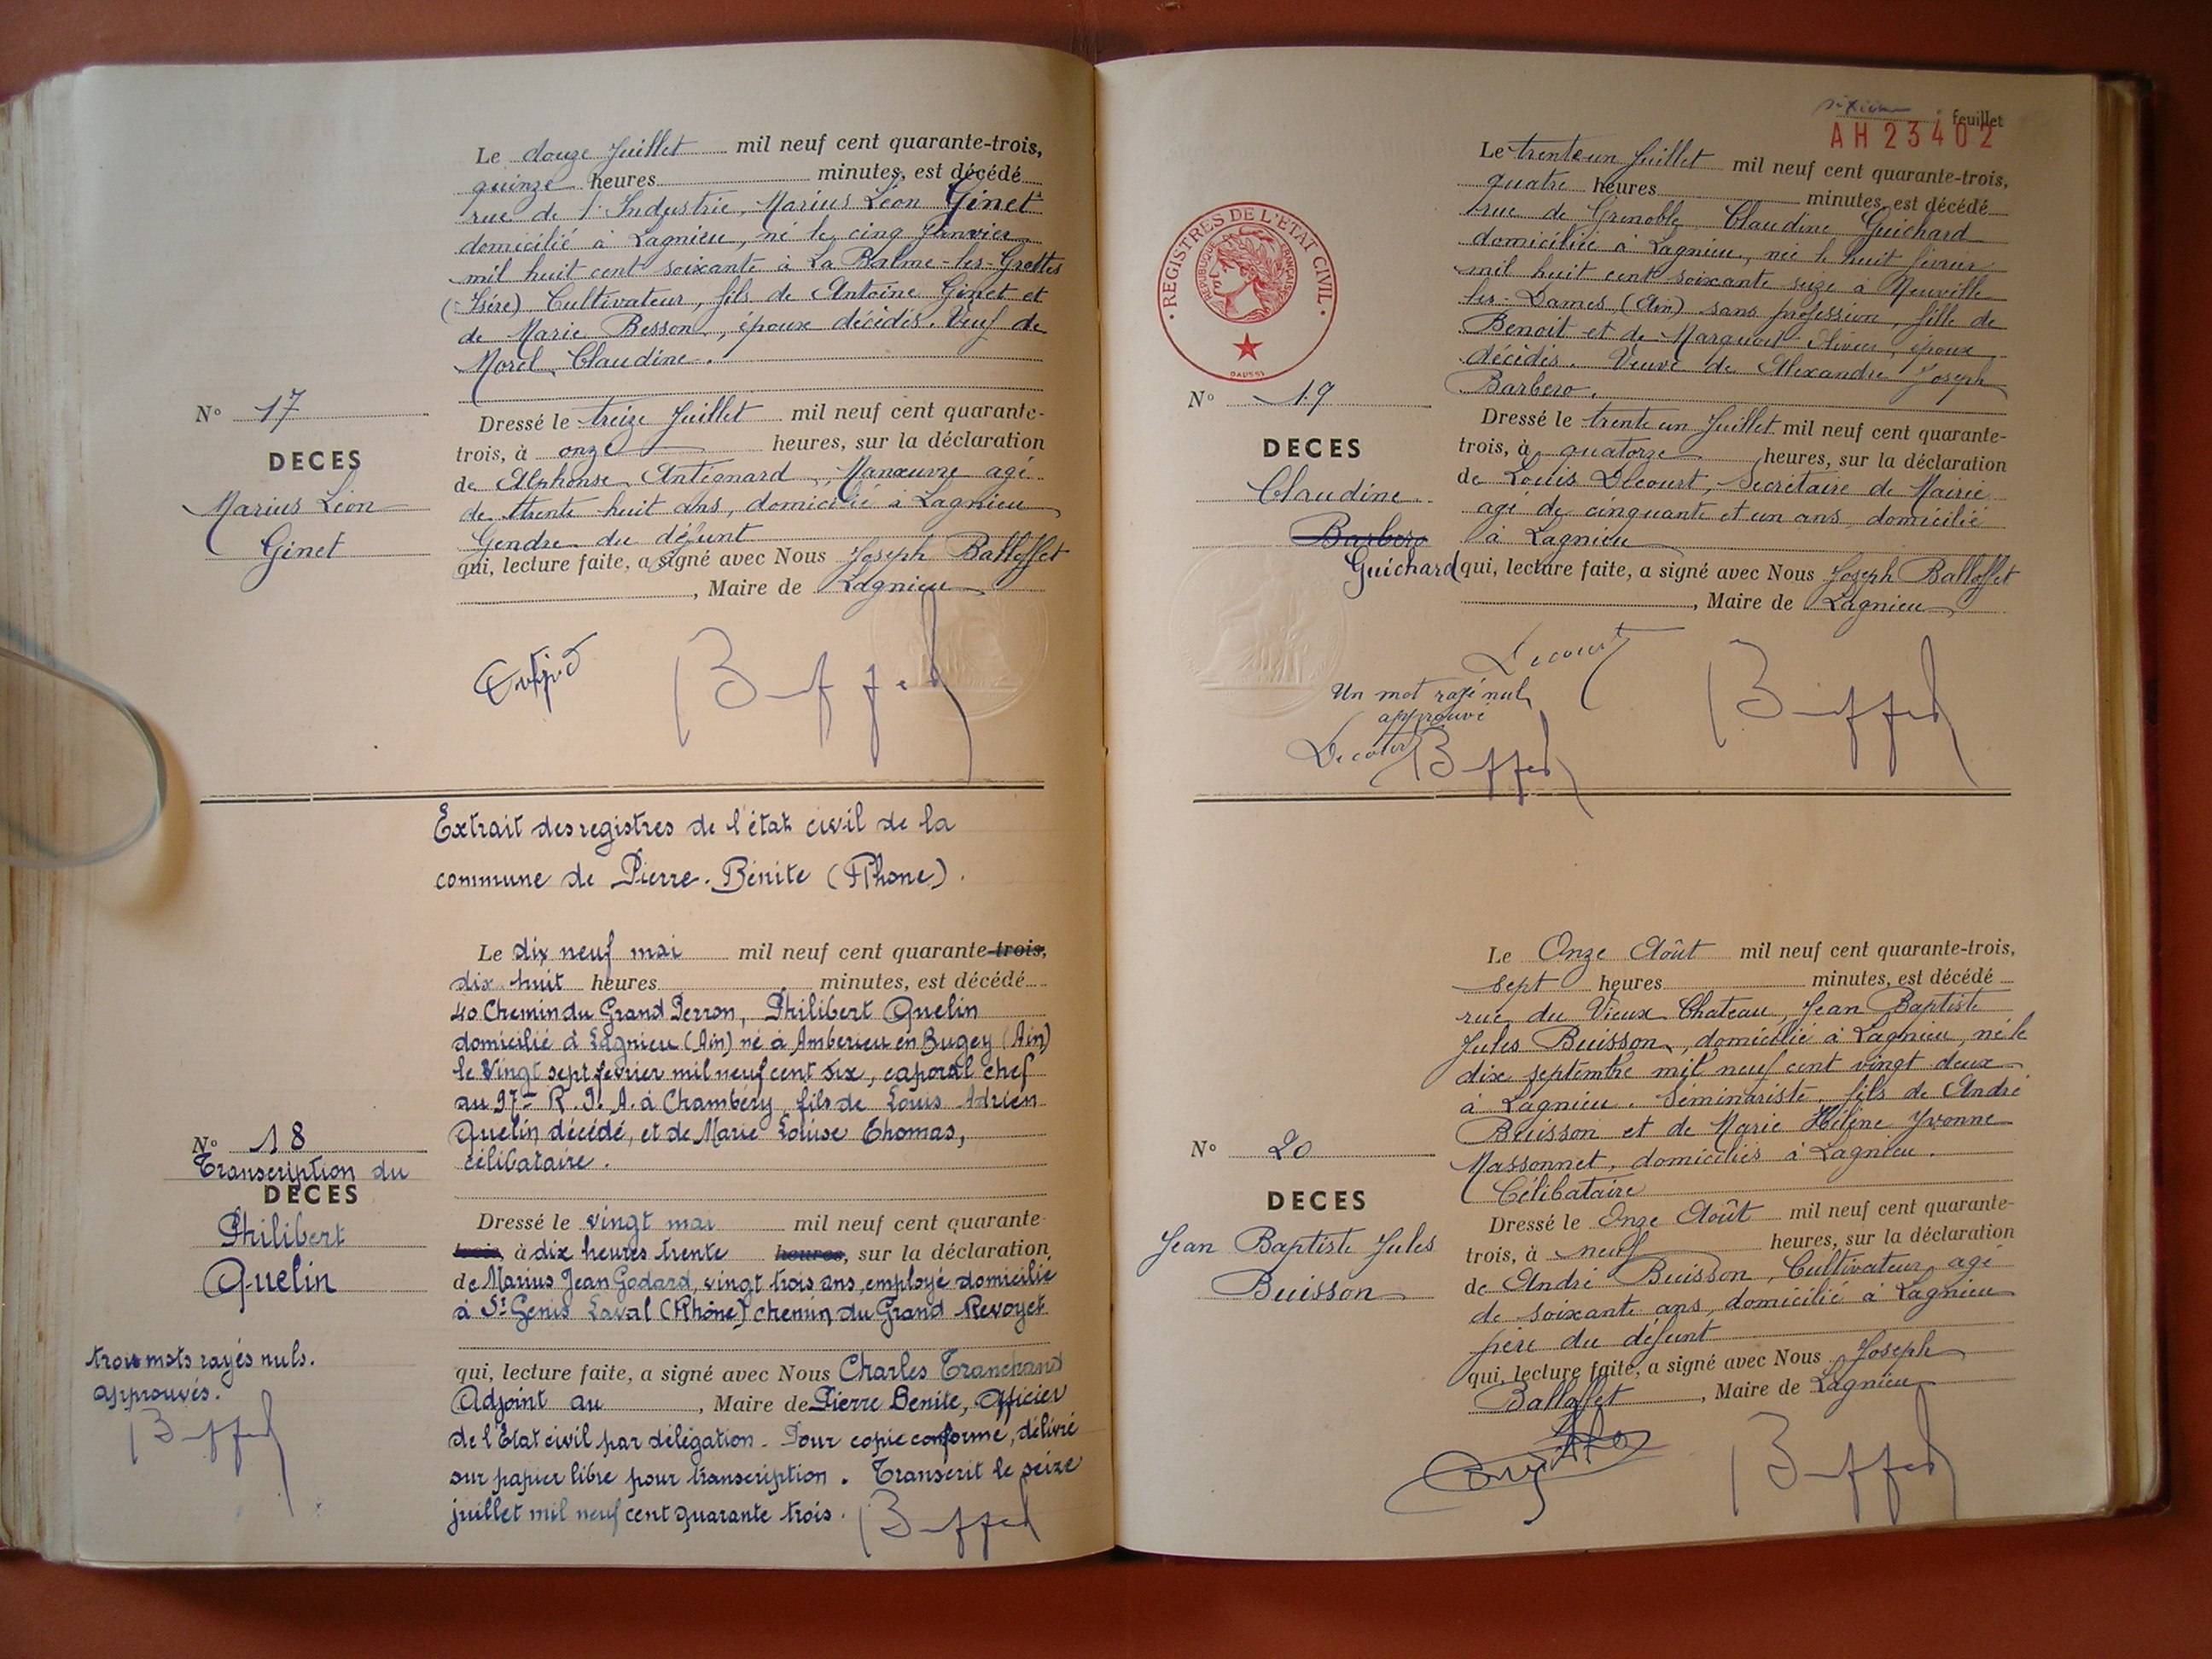 Le douze Juillet mil neuf cent quarante-trois,
quinze heures minutes, est décédé
rue de l'Industrie, Marius Léon Ginet
domicilié à Lagnieu, né le cinq Janvier
mil huit cent soixante à La Balme-les-Grottes
(Isère) Cultivateur, fils de Antoine Ginet et
de Marie Besson, époux décédés. Veuf de
Morel Claudine.
N° 17
DECES
Marius Léon
Ginet
Dressé le treize Juillet mil neuf cent quarante-
trois, à onze heures, sur la déclaration
de Alphonse Antignard, Manœuvre agé
de trente huit ans, domicilié à Lagnieu
Gendre du défunt
qui, lecture faite, a signé avec Nous Joseph Balloffet
, Maire de Lagnieu
Extrait des registres de l'état civil de la
commune de Pierre-Bénite (Rhone).
Le dix neuf mai mil neuf cent quarante-trois,
dix huit heures minutes, est décédé
40 Chemin du Grand Perron, Philibert Quelin
domicilié à Lagnieu (Ain) né à Amberieu en Bugey (Ain)
le Vingt sept fevrier mil neuf cent six, caporal chef
au 97e R.I.A. à Chambery, fils de Louis Adrien
Quelin décédé, et de Marie Louise Thomas,
célibataire.
N° 18
Transcription du
DECES
Philibert
Quelin
Dressé le vingt mai mil neuf cent quarante-
trois, à dix heures trente heures, sur la déclaration
de Marius Jean Godard, vingt trois ans, employé domicilié
à St Genis Laval (Rhône) chemin du Grand Revoyet
trois mots rayés nuls.
approuvés.
qui, lecture faite, a signé avec Nous Charles Tranchand
Adjoint au , Maire de Pierre Benite, Officier
de l'Etat civil par délégation. Pour copie conforme, délivré
sur papier libre pour transcription. Transcrit le seize
juillet mil neuf cent quarante trois.
sixième feuillet
AH 23402
Le trente un Juillet mil neuf cent quarante-trois,
quatre heures minutes, est décédé
rue de Grenoble, Claudine Guichard
domiciliée à Lagnieu, née le huit février
mil huit cent soixante seize à Neuville
les-Dames (Ain) sans profession, fille de
Benoit et de Marquois, époux
décédés. Veuve de Alexandre Joseph
Barbero.
REGISTRES DE L'ETAT CIVIL
REPUBLIQUE FRANÇAISE
N° 19
DECES
Claudine
Barbero
Guichard
Dressé le trente un Juillet mil neuf cent quarante-
trois, à quatorze heures, sur la déclaration
de Louis Decourt, Secrétaire de Mairie
agé de cinquante et un ans, domicilié
à Lagnieu
qui, lecture faite, a signé avec Nous Joseph Balloffet
, Maire de Lagnieu
Decourt
Un mot rayé nul
approuvé
Decourt
Le Onze Août mil neuf cent quarante-trois,
sept heures minutes, est décédé
rue du Vieux Chateau, Jean Baptiste
Jules Buisson, domicilié à Lagnieu, né le
dix septembre mil neuf cent vingt deux
à Lagnieu. Séminariste, fils de André
Buisson et de Marie Hélène Yvonne
Massonnet, domiciliés à Lagnieu.
Célibataire
N° 20
DECES
Jean Baptiste Jules
Buisson
Dressé le Onze Août mil neuf cent quarante-
trois, à neuf heures, sur la déclaration
de André Buisson, Cultivateur, agé
de soixante ans, domicilié à Lagnieu
père du défunt
qui, lecture faite, a signé avec Nous Joseph
Balloffet , Maire de Lagnieu